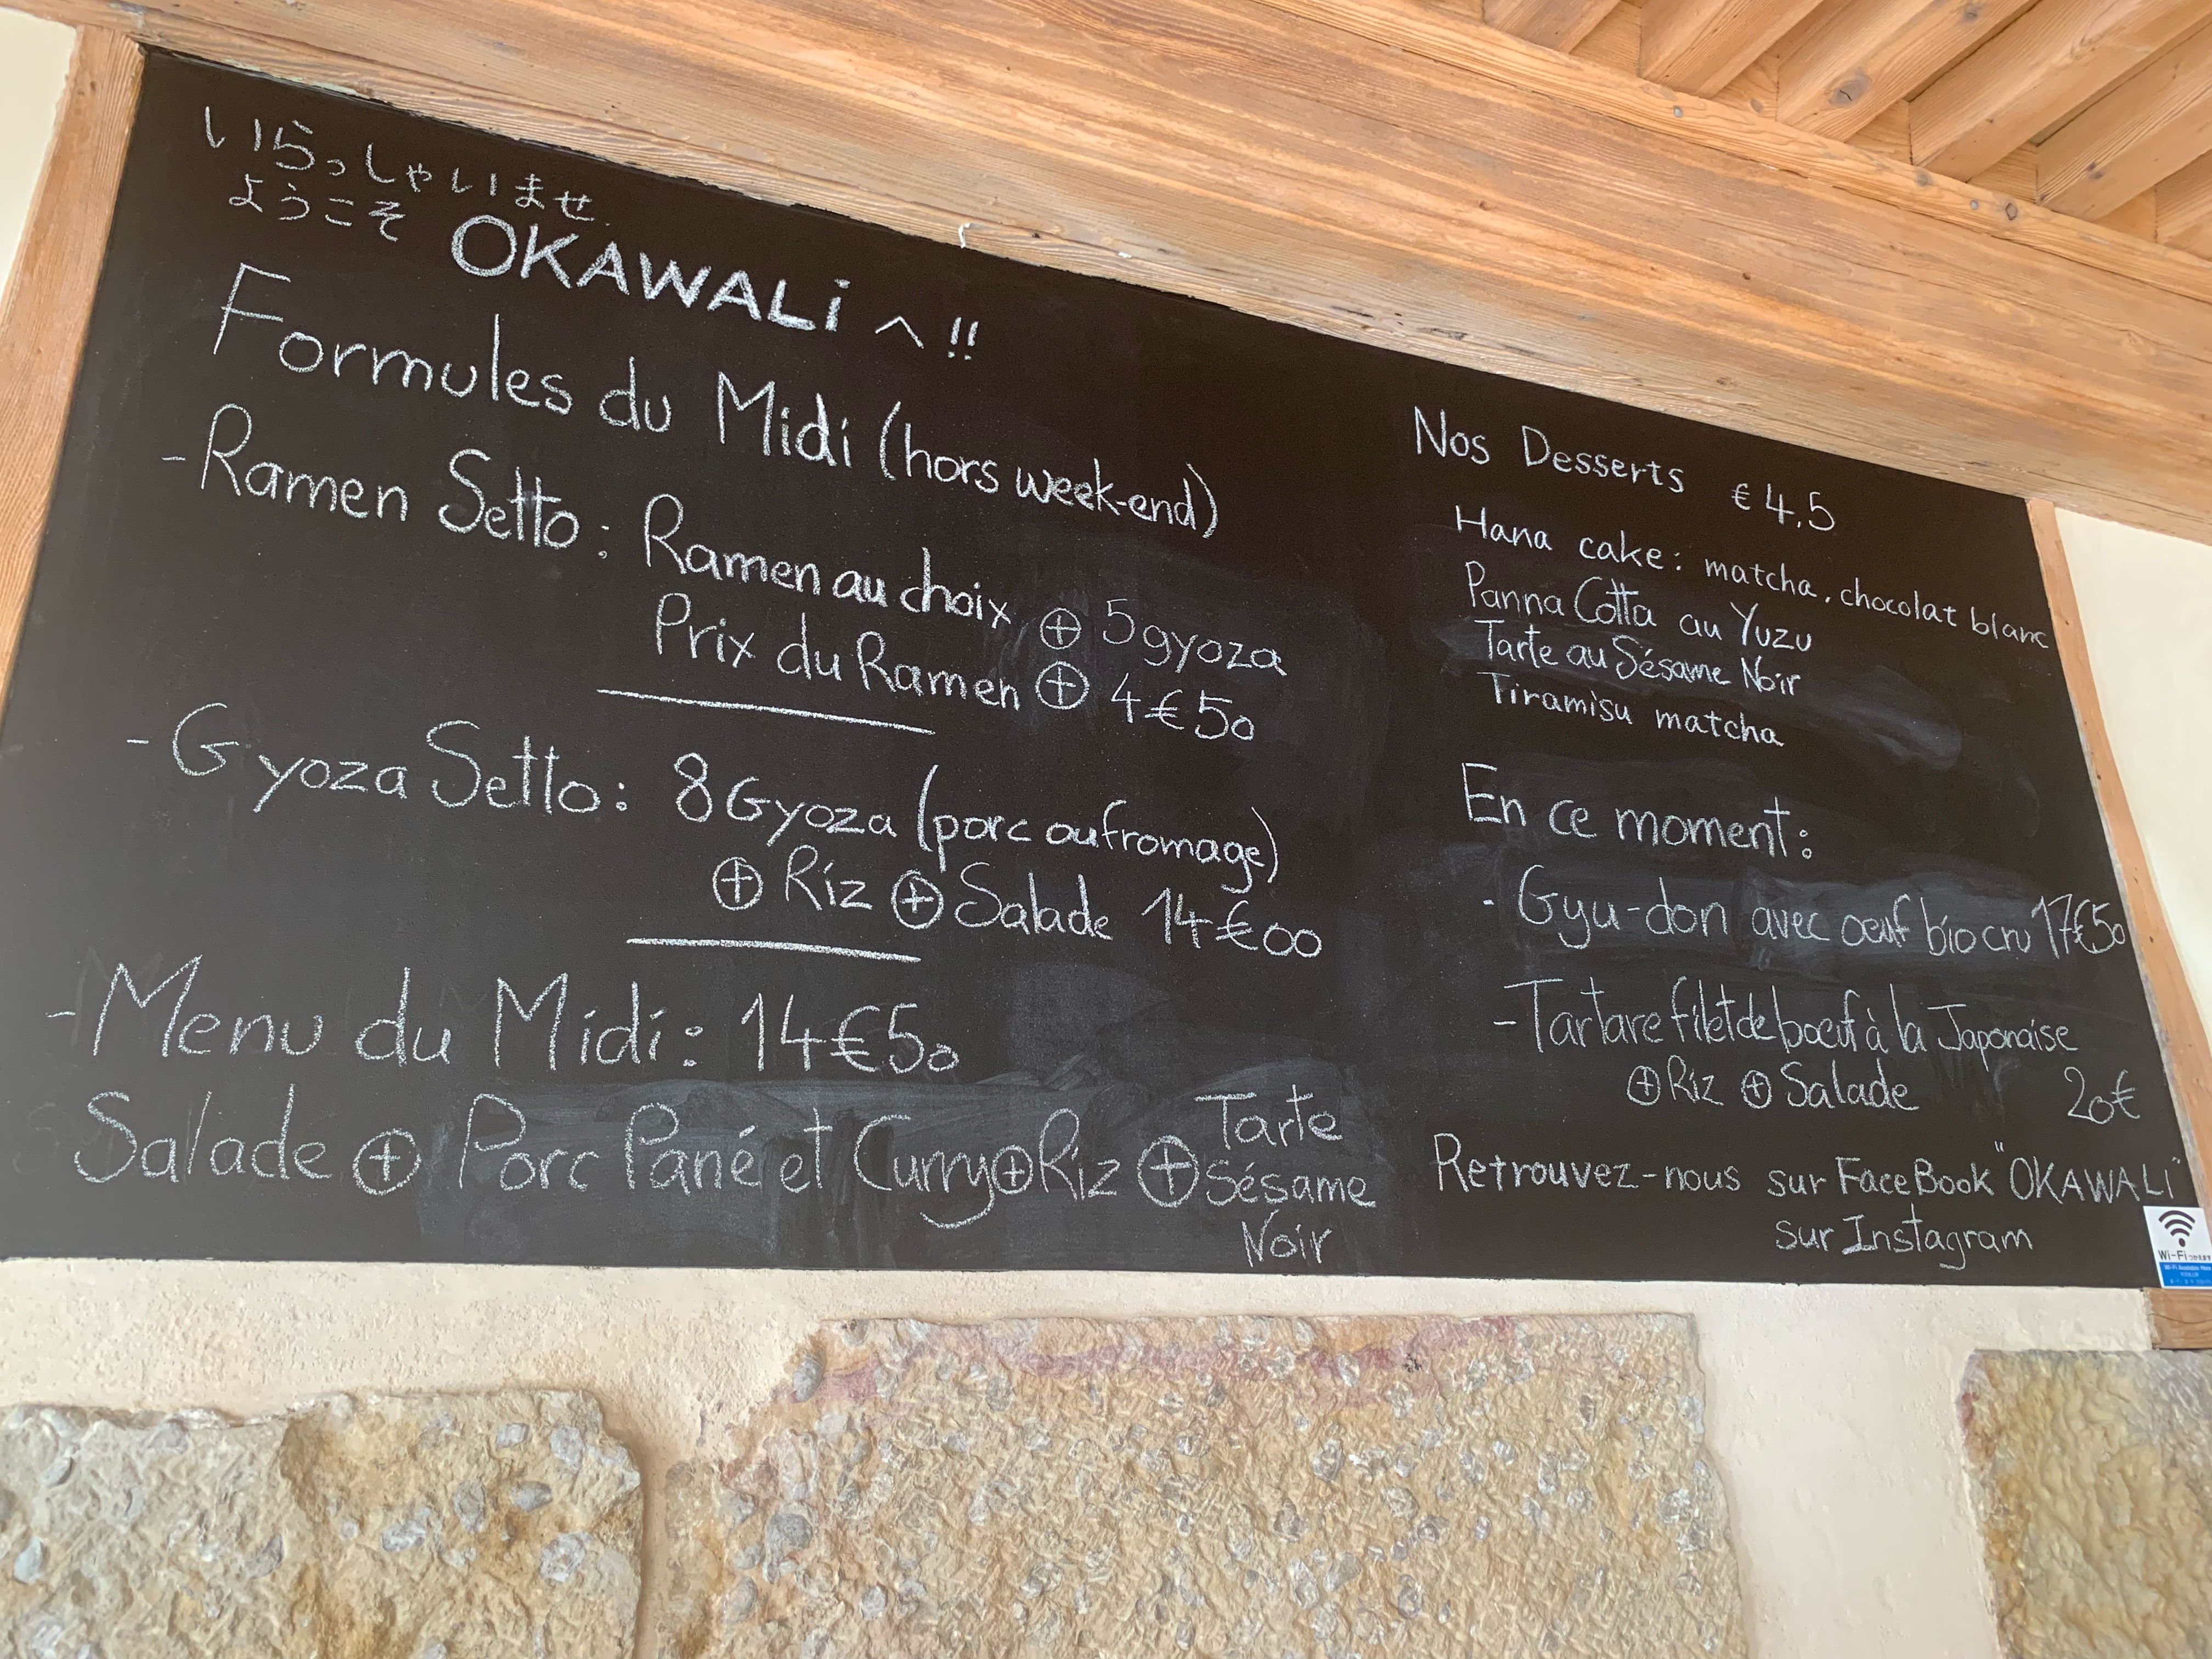 いらっしゃいませ
ようこそ OKAWALi へ !!
Formules du Midi (hors week-end)
- Ramen Setto : Ramen au choix ⊕ 5 gyoza
Prix du Ramen ⊕ 4€50
- Gyoza Setto : 8 Gyoza (porc ou fromage)
⊕ Riz ⊕ Salade 14€00
- Menu du Midi : 14€50
Salade ⊕ Porc Pané et Curry ⊕ Riz ⊕ Tarte
Sésame
Noir
Nos Desserts €4,5
Hana cake : matcha, chocolat blanc
Panna Cotta au Yuzu
Tarte au Sésame Noir
Tiramisu matcha
En ce moment :
- Gyu-don avec oeuf bio cru 17€50
- Tartare filet de boeuf à la Japonaise
⊕ Riz ⊕ Salade 20€
Retrouvez-nous sur FaceBook "OKAWALi"
sur Instagram
Wi-Fi つかえます
Wi-Fi Available Here